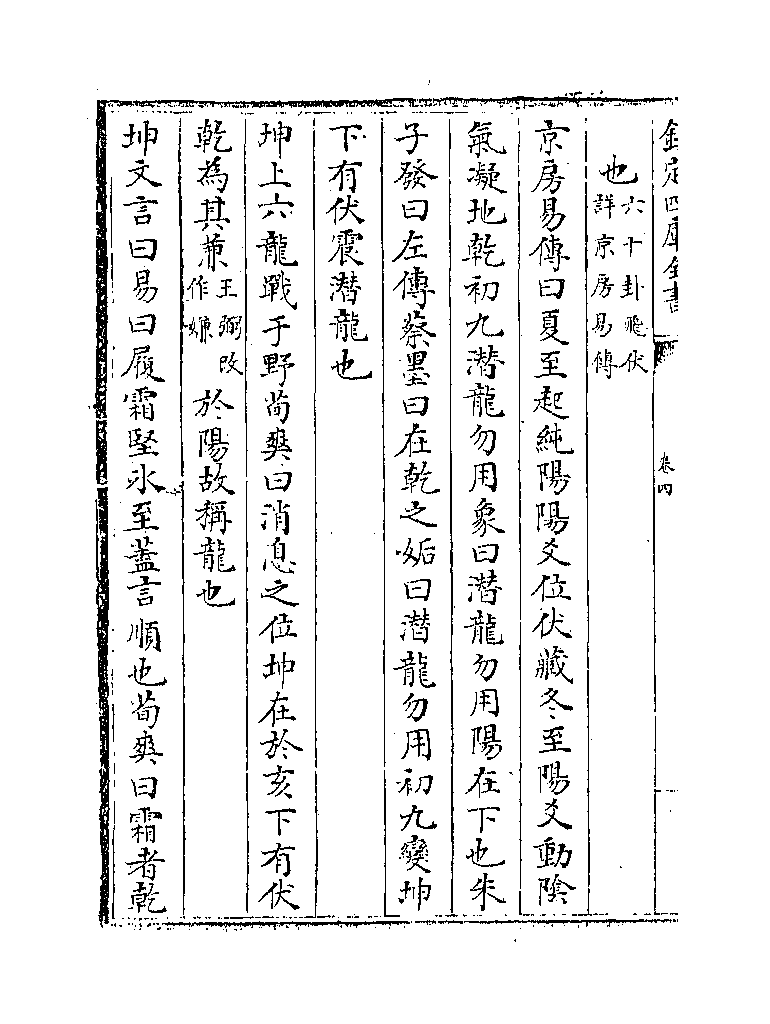 欽定四庫全書
卷四
也六十卦飛伏
詳京房易傳
京房易傳曰夏至起純陽陽爻位伏藏冬至陽爻動陰
氣凝地乾初九潛龍勿用象曰潛龍勿用陽在下也朱
子發曰左傳蔡墨曰在乾之姤曰潛龍勿用初九變坤
下有伏震潛龍也
坤上六龍戰于野荀爽曰消息之位坤在於亥下有伏
乾為其兼王弼改
作嫌於陽故稱龍也
坤文言曰易曰履霜堅氷至蓋言順也荀爽曰霜者乾